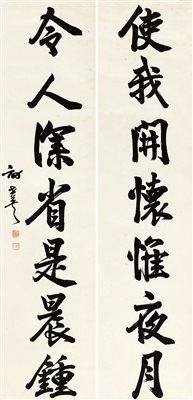 使我開懷惟夜月
令人深省是晨鍾